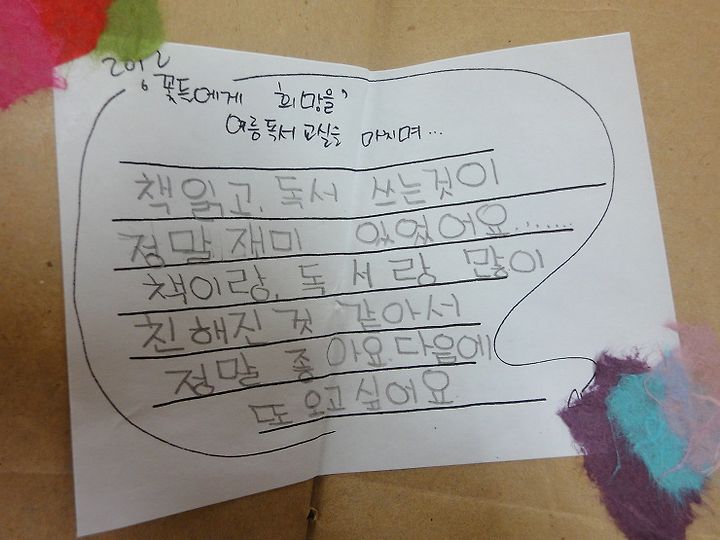 2012
꽃들에게 희망을,
여름독서교실을 마치며...
책읽고, 독서 쓰는것이
정말 재미 있었어요.......
책이랑, 독서랑 많이
친해진것 같아서
정말 좋아요. 다음에
또 오고 싶어요